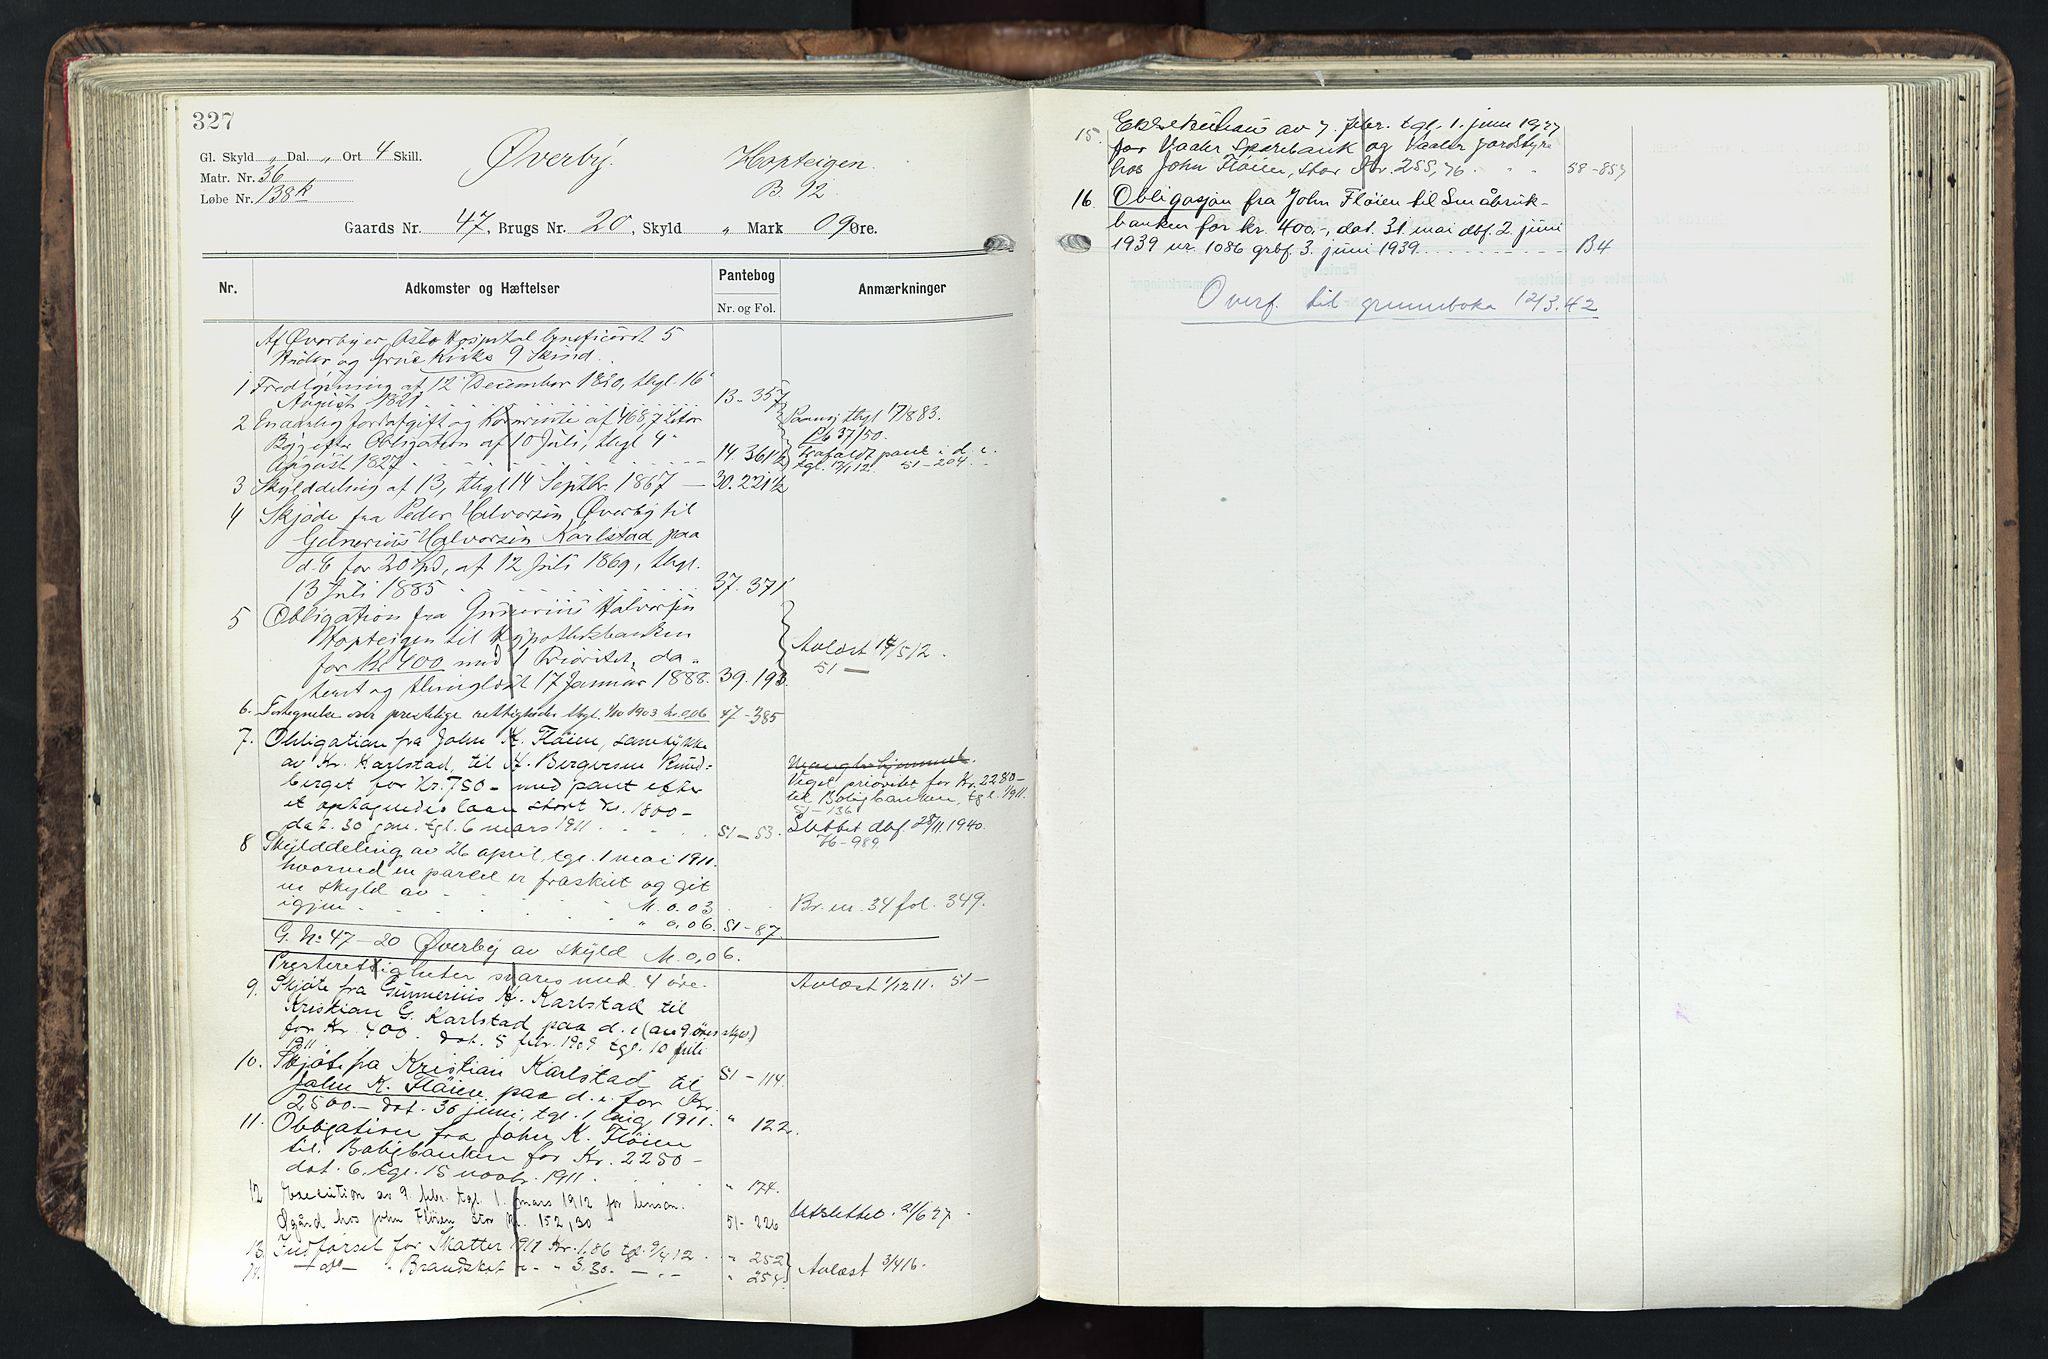 327
Gl. Skyld „ Dal. „ Ort 4 Skill.
Matr. Nr. 36
Løbe Nr. 138k
Øverby. Hopteigen.
B. 92
Gaards Nr. 47, Brugs Nr. 20, Skyld „ Mark 09 Øre.
Nr. Adkomster og Hæftelser Pantebog Anmærkninger
Nr. og Fol.
Af Øverby er Oslo Hospital beneficeret 5
Huder og Grue Kirke 9 Skind.
1 Fredløsning af 12 December 1820, thgl. 16
August 1821 13 - 357
2 En aarlig Jordafgift og Kornrente af 468,7 Liter
Byg efter Obligation af 10 Juli, thgl 4
August 1827 14. 361½
thgl 17/1 883.
Pb 37/50.
Frafaldt pant i d. e.
tgl. 51-204.
3 Skylddeling af 13, thgl 14 Septbr. 1867 — 30. 221½
4 Skjøde fra Peder Halvorsen Øverby til
Gunerius Halvorsen Karlstad paa
d. E for 20 Spd, af 12 Juli 1869, thgl.
13 Juli 1885 37. 371
5 Obligation fra Gunerius Halvorsen
Hopteigen til Hypothekbanken
for Kr 400 med 1 Prioritet, da-
teret og thinglæst 17 Januar 1888. 39. 193.
Avlæst 14/5 12.
51 —
6. Fortegnelse over prestelige rettigheder thgl. 1/10 1903 kr. 0,06 47-385
7. Obligation fra John K. Fløien, samtykke
av Kr. Karlstad, til H. Bergersen Rund-
berget for Kr. 750 - med pant efter
et optagendes laan stort Kr. 1800 -
dat. 30 jan. tgl. 6 mars 1911. 51 - 53.
Mangler hjemmel.
Veget prioritet for Kr. 2280 -
til Boligbanken, tgl. 1911.
51 - 136
Slettet dbf 28/11. 1940.
76-989
8 Skylddeling av 26 april, tgl. 1 mai 1911.
hvorved en parcel er fraskilt og git
en skyld av M. 0.03
igjen „ 0,06. 51-87.
Br. nr. 34 fol. 349.
G. No 47 - 20 Øverby av skyld M. 0,06.
Presterettigheter svares med 4 øre.
9. Skjøte fra Gunnerius H. Karlstad til
Kristian G. Karlstad paa d. e (av 9 øres skyld)
for Kr. 400 dat. 5 febr. 1909 tgl. 10 juli
1911. 51 - 114.
Avlæst 1/12 11. 51 -
10. Skjøte fra Kristian Karlstad til
John K. Fløien paa d. e. for Kr.
2500.- dat. 30 juni, tgl. 1 aug 1911. „ 122.
11. Obligation fra John K. Fløien
til Boligbanken for Kr. 2250 -
dat. 6, tgl. 15 novbr. 1911. „ 174.
12 Execution av 9. febr. tgl. 1. mars 1912 for
hos John Fløien stor Kr. 152,30 51-226
Utslettet. 21/6 27.
13. Indførsel for Skatter 1911 Kr. 1.86 tgl. 9/4 12 „ 252
14. — do — „ Brandskat „ - „ 3.30. — „ - „ 254.
Avlæst 3/4 16.
15. Eksekution av 7. febr. tgl. 1. juni 1927
for Vaaler Sparebank og Vaaler jordstyre
hos John Fløien, stor Kr. 255,76. 58-857
16. Obligasjon fra John Fløien til Småbruk-
banken for kr. 400.-, dat. 31. mai dbf. 2. juni
1939 nr. 1086 grbf. 3. juni 1939. B4
Overf. til grunnboka 12/3.42